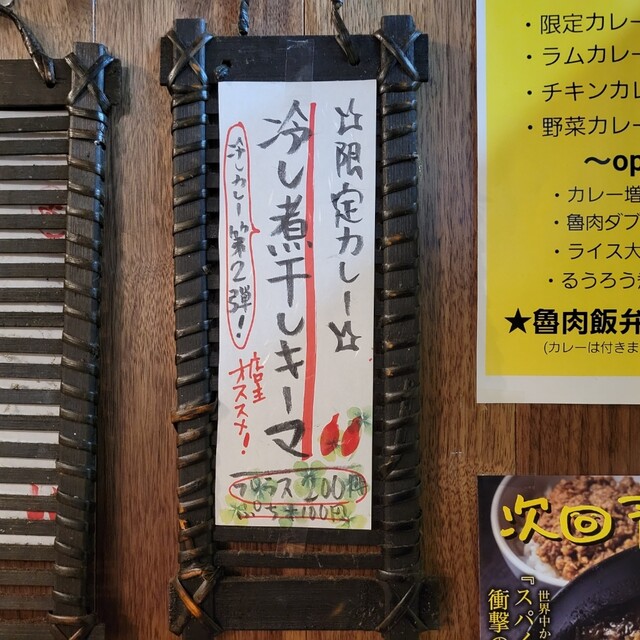 ☆限定カレー☆
冷し煮干しキーマ
冷しカレー第2弾！
店主
オススメ！
プラス 200円
+100円
・限定カレー
・ラムカレー
・チキンカレ
・野菜カレー
～op
・カレー増
・魯肉ダブ
・ライス大
・るうろう
★魯肉飯弁
(カレーは付きま
次回
世界中か
『スパ
衝撃の